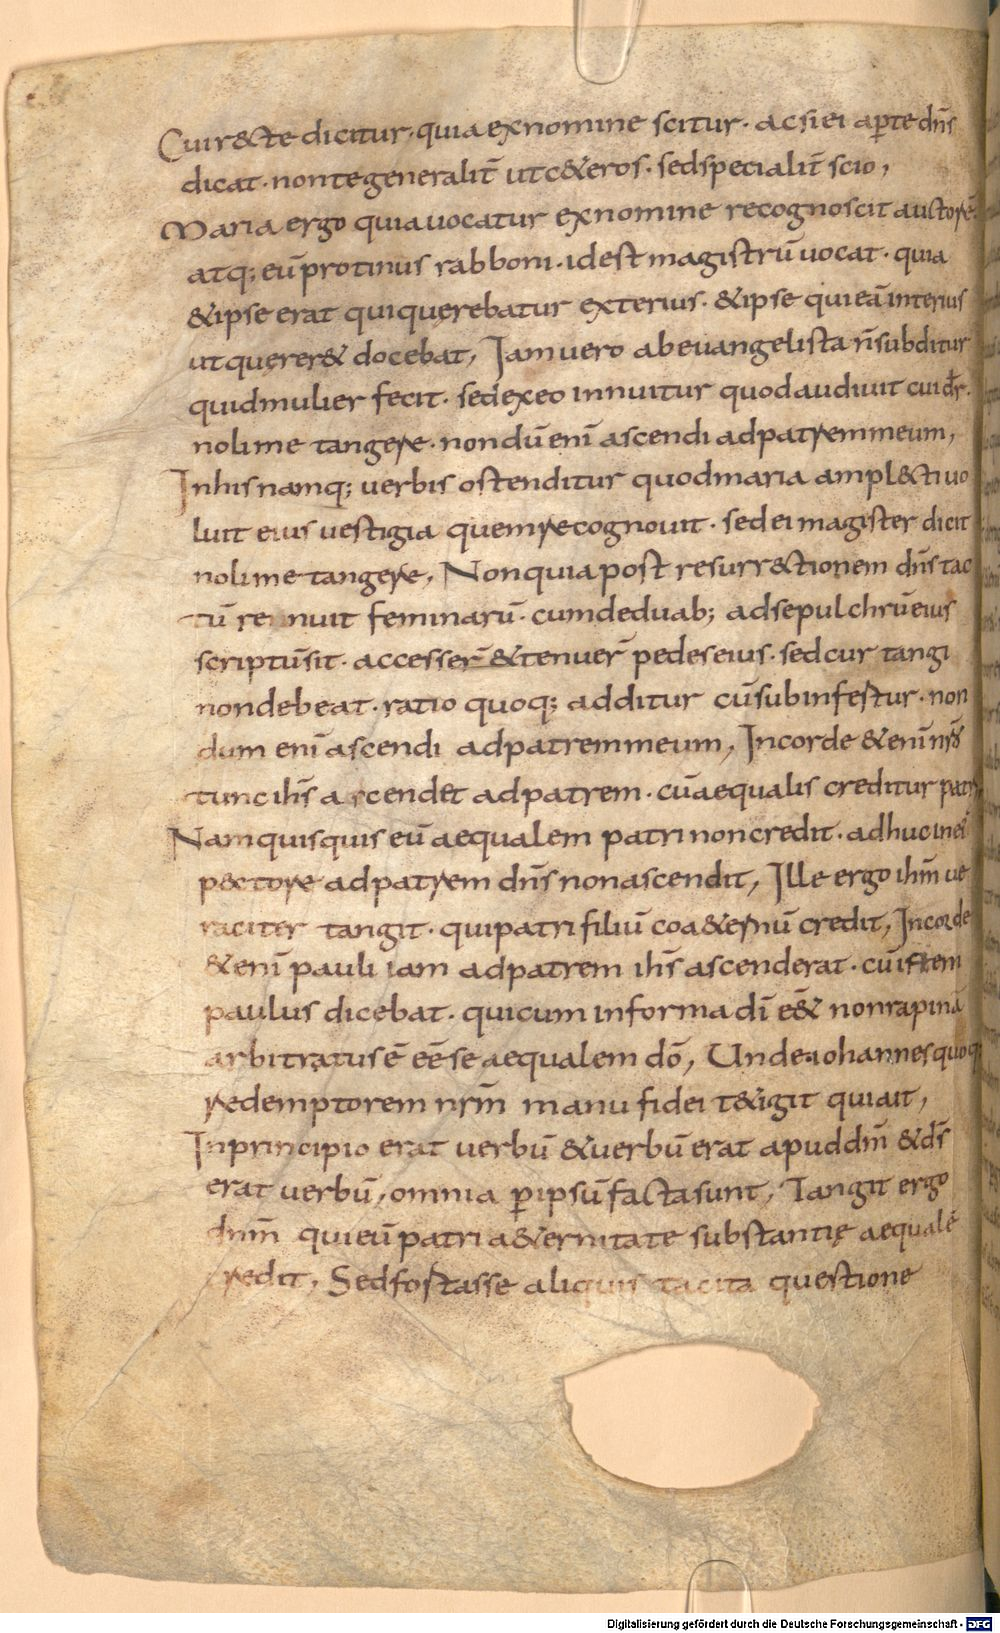 Cui r&te dicitur· quia ex nomine scitur· ac si ei aꝑte dn̄s
dicat· non te generalit̄ ut c&eros· sed specialit̄ scio,
Maria ergo quia uocatur ex nomine recognoscit auctorē·
atq; eū protinus rabboni· id est magistrū uocat· quia
&ipse erat qui quęrebatur exterius· &ipse qui eā interius
ut quęrer& docebat, Iam uero ab euangelista n̄ subditur
quid mulier fecit· sed ex eo innuitur quod audiuit cui dr̄·
noli me tangere· nondū enī ascendi ad patrem meum,
In his namq; uerbis ostenditur quod maria ampl&ti uo
luit eius uestigia quem recognouit· sed ei magister dicit
noli me tangere, Non quia post resurr&tionem dn̄s tac
tū renuit feminarū· cum de duab; ad sepulchrū eius
scriptū sit· accesser̄ &tenuer̄ pedes eius· sed cur tangi
non debeat· ratio quoq; additur cū subinfertur· non
dum enī ascendi ad patrem meum, In corde &enī nr̄o
tunc ih̄s ascendet ad patrem· cū aequalis creditur patri
Nam quisquis eū aequalem patri non credit· adhuc in ei
pectore ad patrem dn̄s non ascendit, Ille ergo ihm̄ ue
raciter tangit· qui patri filiū coa&ernū credit, In corde
&enī pauli iam ad patrem ih̄s ascenderat· cū istem
paulus dicebat· qui cum in forma dī eē& non rapinā
arbitratus ē eē se aequalem dō, Unde iohannes quoq;
redemptorem nrm̄ manu fidei t&igit qui ait,
In principio erat uerbū &uerbū erat apud dm̄ &ds̄
erat uerbū, omnia ꝑ ipsū facta sunt, Tangit ergo
dnm̄ qui eū patri a&ernitate substantię aequalē
credit, Sed fortasse aliquis tacita questione
Digitalisierung gefördert durch die Deutsche Forschungsgemeinschaft - DFG